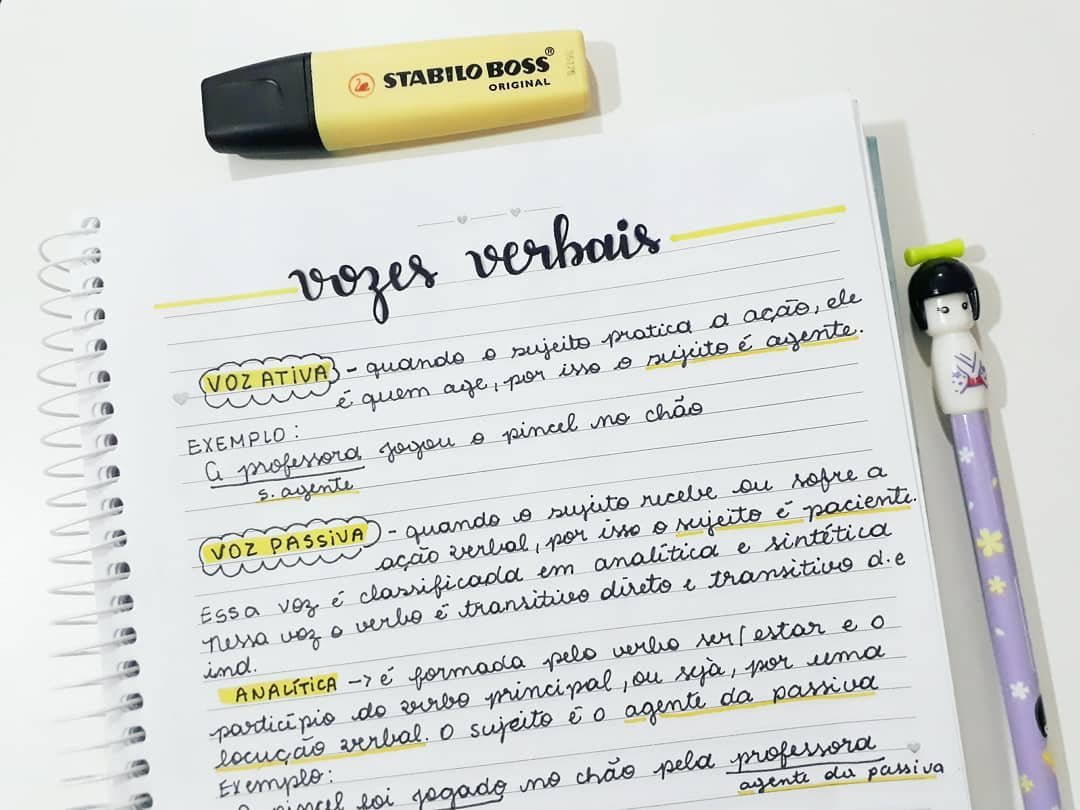 STABILO BOSS®
ORIGINAL
vozes verbais
VOZ ATIVA - quando o sujeito pratica a ação, ele
é quem age, por isso o sujeito é agente.
EXEMPLO:
A professora jogou o pincel no chão
s. agente
VOZ PASSIVA - quando o sujeito recebe ou sofre a
ação verbal, por isso o sujeito é paciente.
Essa voz é classificada em analítica e sintética
nessa voz o verbo é transitivo direto e transitivo d. e
ind.
ANALÍTICA -> é formada pelo verbo ser/estar e o
particípio do verbo principal, ou sejà, por uma
locução verbal. O sujeito é o agente da passiva
Exemplo:
O pincel foi jogado no chão pela professora
agente da passiva